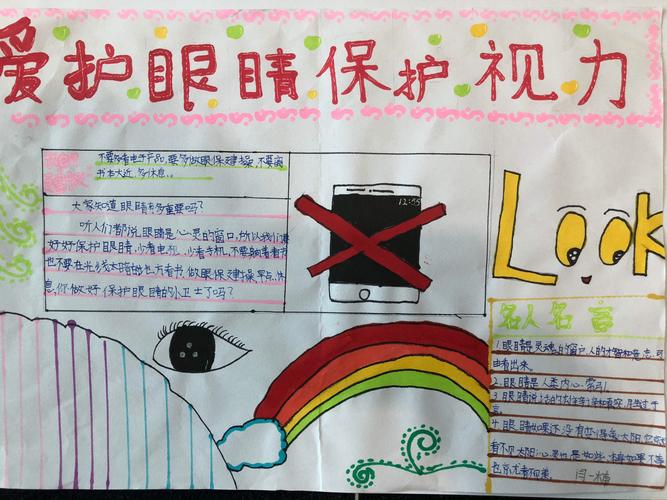 爱护眼睛保护视力
不要多看电子产品,要多做眼保健操,不要离
书本太近,多休息。
12:55
大家知道眼睛有多重要吗?
听人们都说眼睛是心灵的窗口,所以我们要
好好保护眼睛,少看电视,少看手机,不要躺着看书
也不要在光线太暗的地方看书,做眼保健操,早点休
息,你做好保护眼睛的小卫士了吗?
Look
名人名言
1.眼睛是灵魂的窗口,人的才智和意志,可
由看出来。
2.眼睛是人类内心索引。
3.眼睛说话的
言
4.眼睛如果还没有变得象太阳,也
看不见太阳,心灵也是如此,